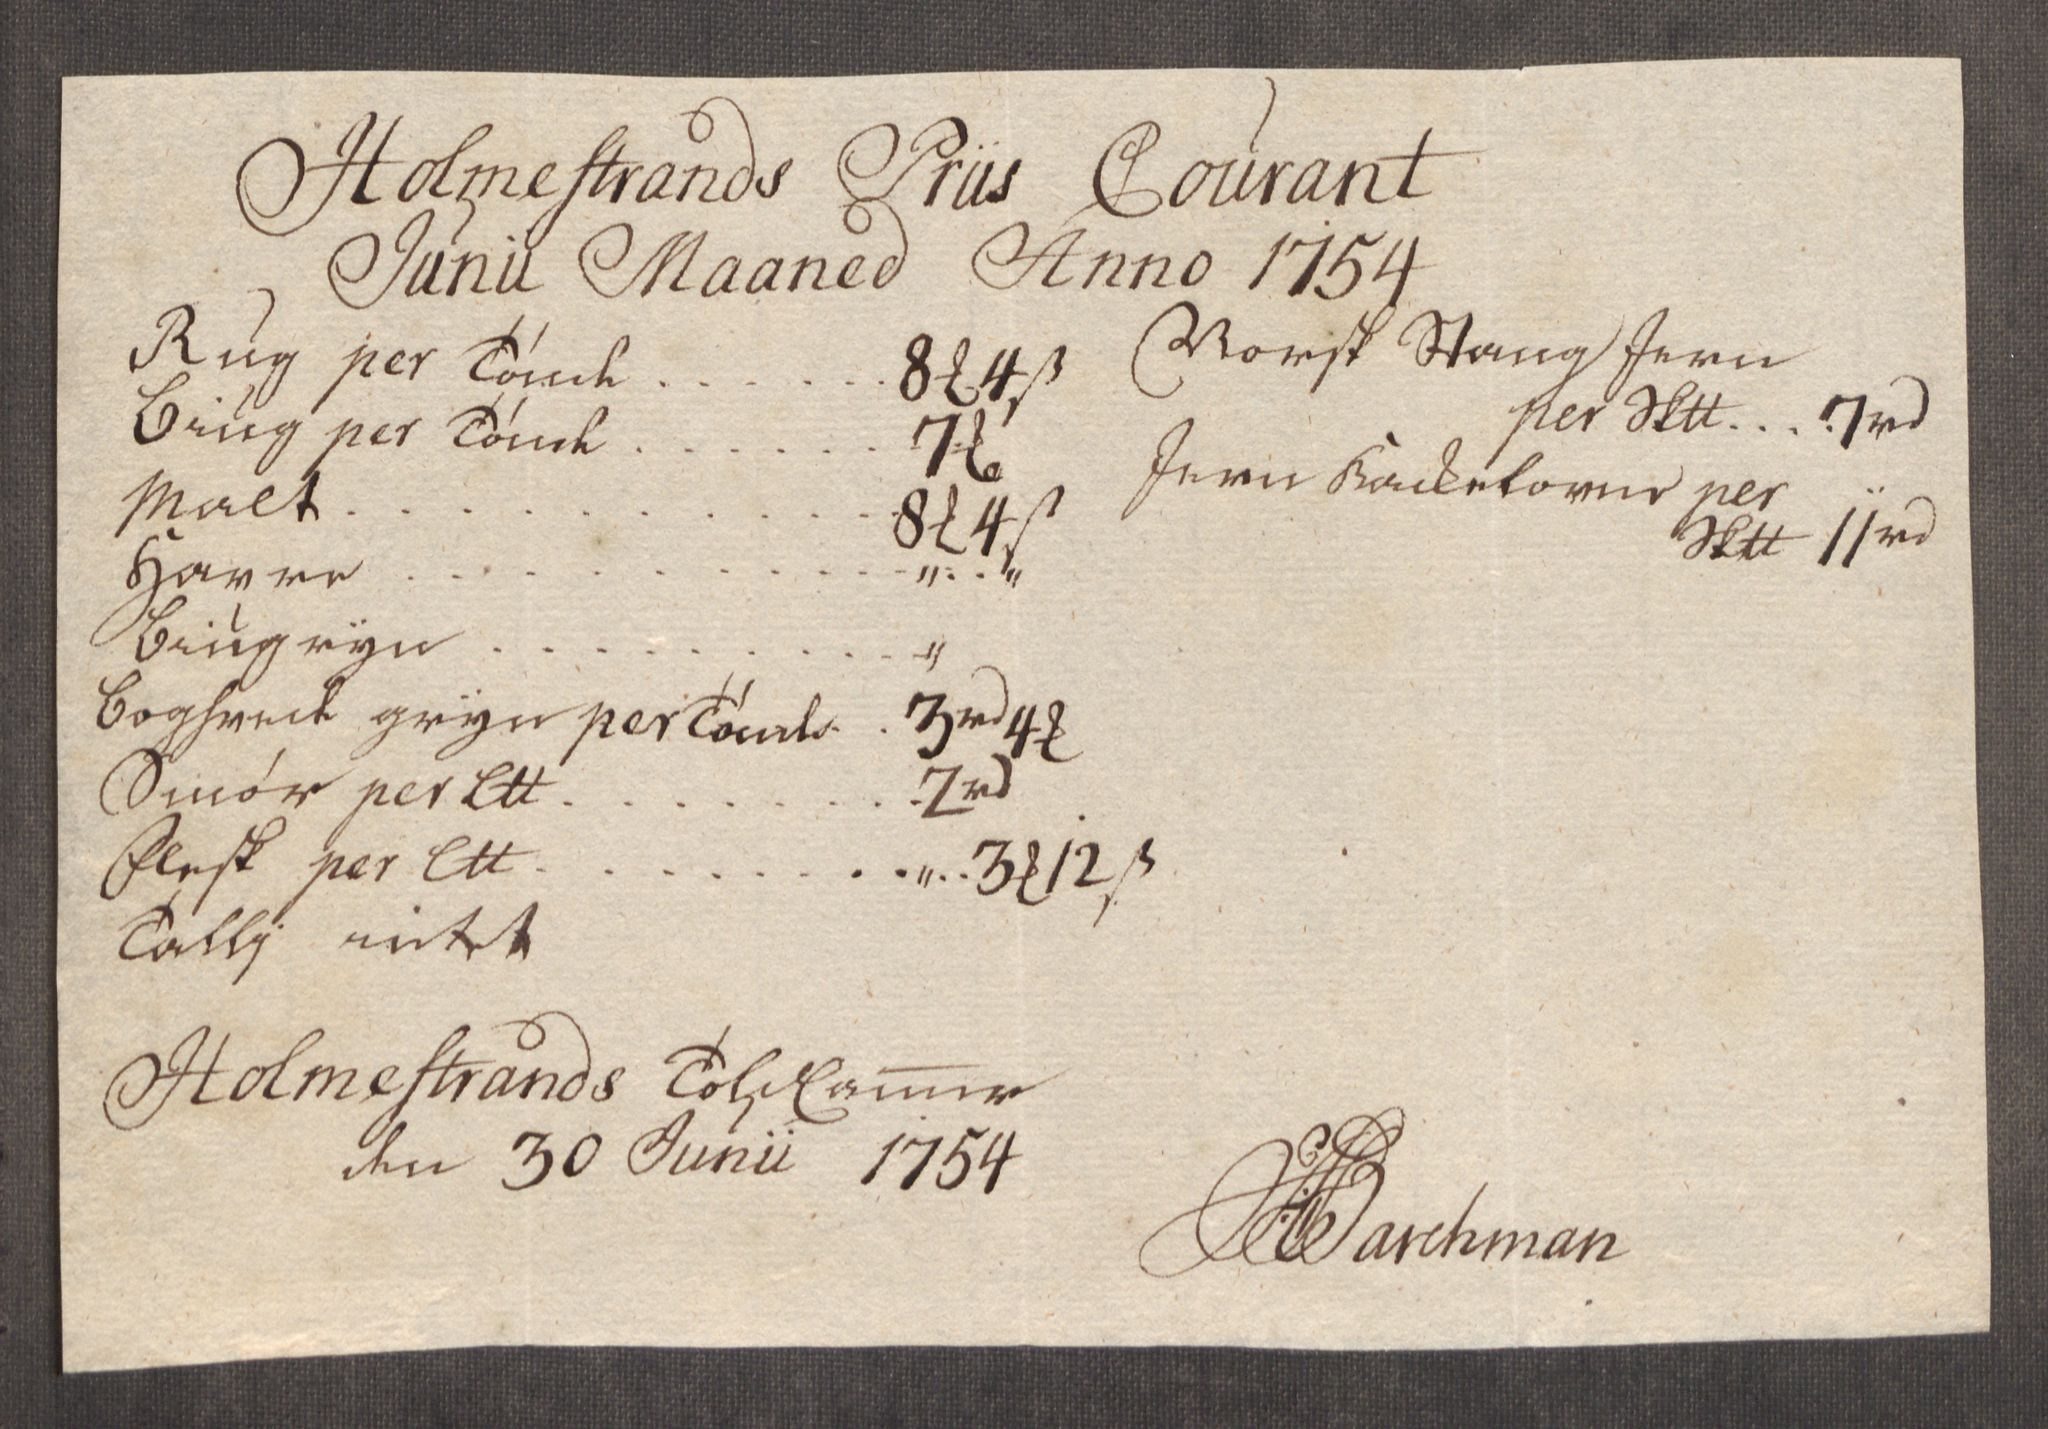 Holmestrands Priis Courant
Junii Maaned Anno 1754
Rug per Tönde . . . . . . 8 ℔ 4 ß
Biug per Tönde . . . . . . 7 ℔
Malt . . . . . . . . . . . . 8 ℔ 4 ß
Havre . . . . . . . . . . . „ . . „
Biugrÿn . . . . . . . . . . „
Boghvede grÿn per Tönde . . 3 rd 4 ℔
Smör per L℔ . . . . . . . . 2 rd
Flesk per L℔ . . . . . . . . „ . . 3 ℔ 12 ß
Tallig intet
Norsk Stang Jern
per Sk℔ . . . . 7 rd
Jern Kackelovne per
Sk℔ 11 rd
Holmestrands Told Cammer
den 30 Junii 1754
Barchman